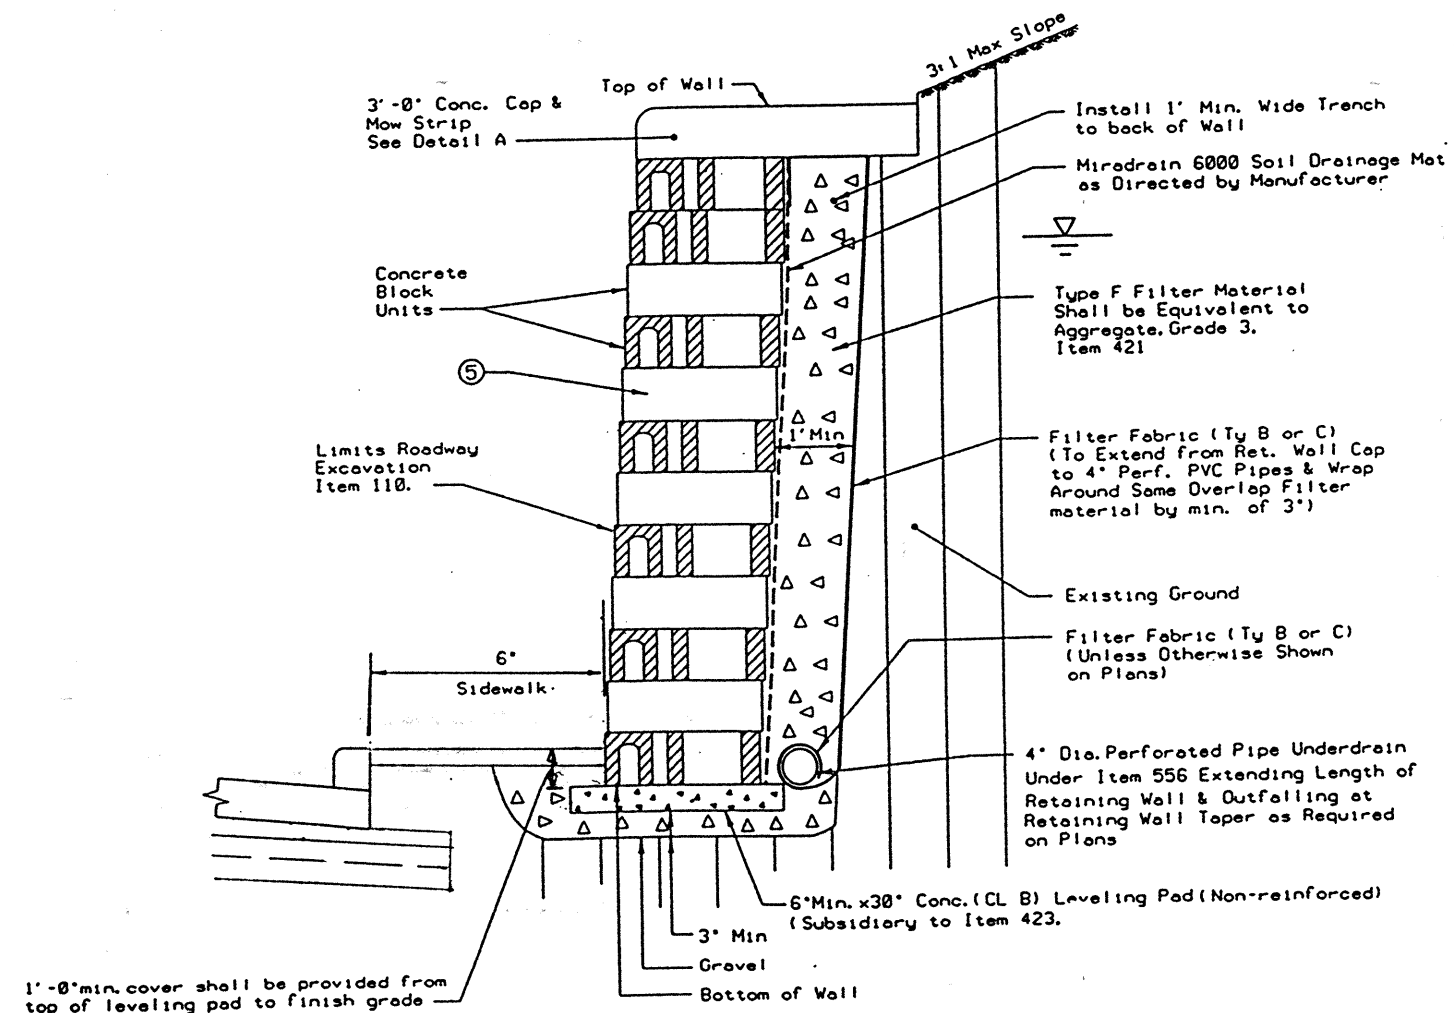 3:1 Max Slope
Top of Wall
3'-0" Conc. Cap &
Mow Strip
See Detail A
Install 1' Min. Wide Trench
to back of Wall
Miradrain 6000 Soil Drainage Mat
as Directed by Manufacturer
Concrete
Block
Units
Type F Filter Material
Shall be Equivalent to
Aggregate, Grade 3.
Item 421
5
1' Min
Limits Roadway
Excavation
Item 110.
Filter Fabric (Ty B or C)
(To Extend from Ret. Wall Cap
to 4" Perf. PVC Pipes & Wrap
Around Same Overlap Filter
material by min. of 3")
Existing Ground
Filter Fabric (Ty B or C)
(Unless Otherwise Shown
on Plans)
6"
Sidewalk
4" Dia. Perforated Pipe Underdrain
Under Item 556 Extending Length of
Retaining Wall & Outfalling at
Retaining Wall Taper as Required
on Plans
6"Min. x30" Conc. (CL B) Leveling Pad (Non-reinforced)
(Subsidiary to Item 423.
3" Min
Gravel
Bottom of Wall
1'-0"min. cover shall be provided from
top of leveling pad to finish grade